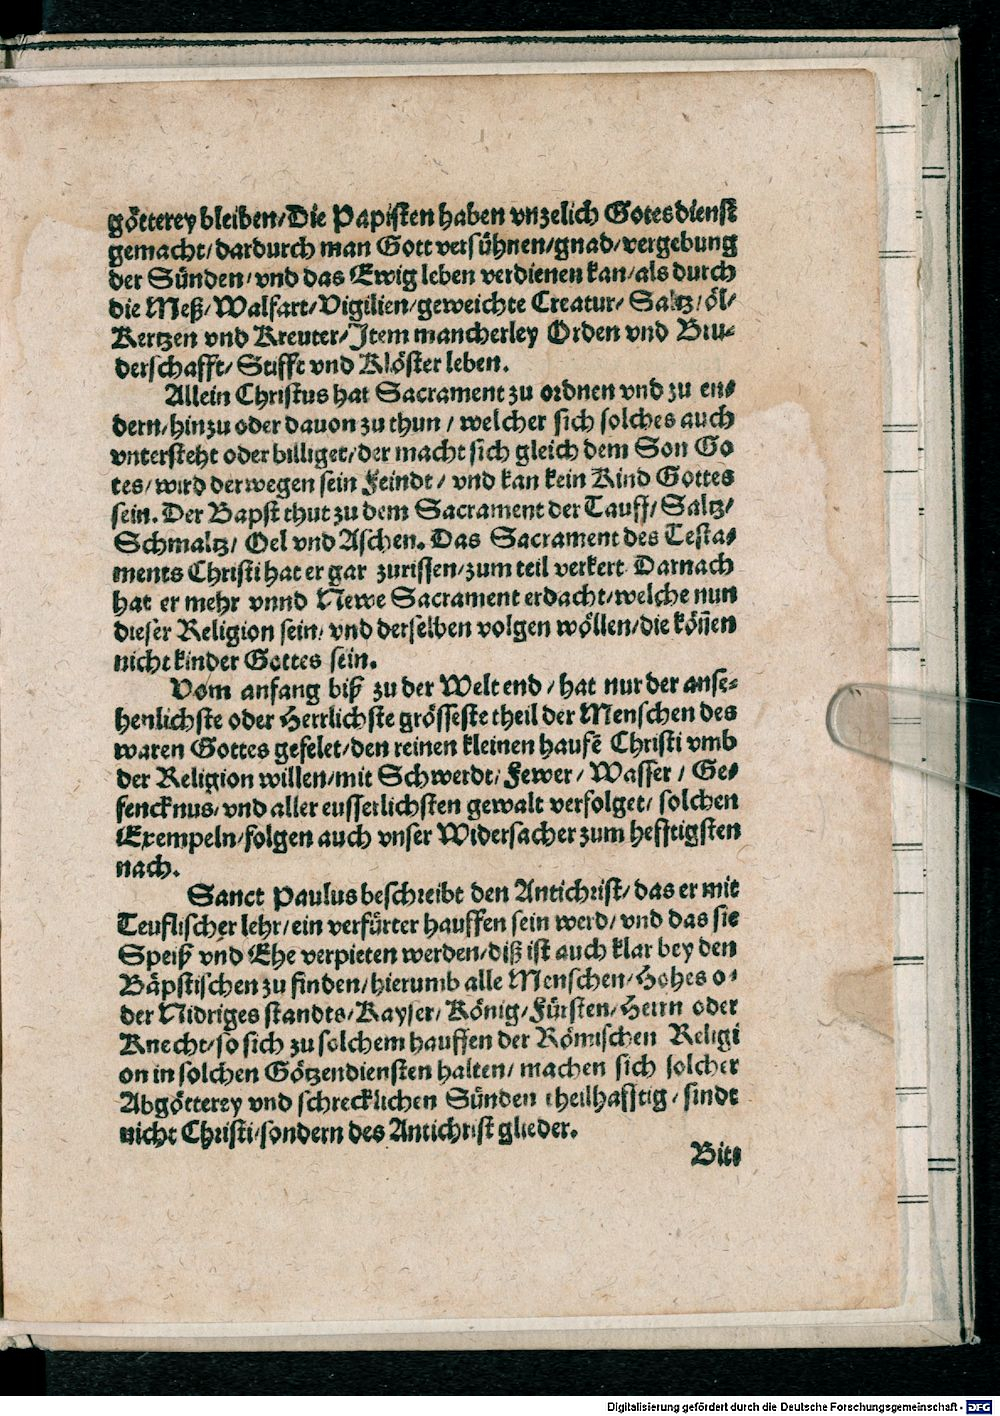 götterey bleiben/Die Papisten haben vnzelich Gotesdienst
gemacht/dardurch man Gott versühnen/gnad/vergebung
der Sünden/vnd das Ewig leben verdienen kan/als durch
die Meß/Walfart/Vigilien/geweichte Creatur/ Saltz/öl/
Kertzen vnd Kreuter/Item mancherley Orden vnd Bru-
derschafft/ Stifft vnd Klöster leben.
Allein Christus hat Sacrament zu ordnen vnd zu en-
dern/hinzu oder dauon zu thun / welcher sich solches auch
vntersteht oder billiget/der macht sich gleich dem Son Go
tes/wird derwegen sein Feindt/ vnd kan kein Kind Gottes
sein. Der Bapst thut zu dem Sacrament der Tauff/Saltz/
Schmaltz/ Oel vnd Aschen. Das Sacrament des Testa-
ments Christi hat er gar zurissen/zum teil verkert Darnach
hat er mehr vnnd Newe Sacrament erdacht/welche nun
dieser Religion sein/ vnd derselben volgen wöllen/die köñen
nicht kinder Gottes sein.
Vom anfang biß zu der Welt end / hat nur der anse-
henlichste oder Herrlichste grösseste theil der Menschen des
waren Gottes gefelet/den reinen kleinen haufē Christi vmb
der Religion willen/mit Schwerdt/ Fewer/ Wasser / Ge-
fencknus/vnd aller eusserlichsten gewalt verfolget/ solchen
Exempeln/folgen auch vnser Widersacher zum hefftigsten
nach.
Sanct Paulus beschreibt den Antichrist/das er mit
Teuflischer lehr/ein verfürter hauffen sein werd/vnd das sie
Speiß vnd Ehe verpieten werden/diß ist auch klar bey den
Bäpstischen zu finden/hierumb alle Menschen/Hohes o-
der Nidriges standts/Kayser/König/Fürsten/Herrn oder
Knecht/so sich zu solchem hauffen der Römischen Religi
on in solchen Götzendiensten halten/ machen sich solcher
Abgötterey vnd schrecklichen Sünden theilhafftig/sindt
nicht Christi/sondern des Antichrist glieder.
Bit-
Digitalisierung gefördert durch die Deutsche Forschungsgemeinschaft - DFG